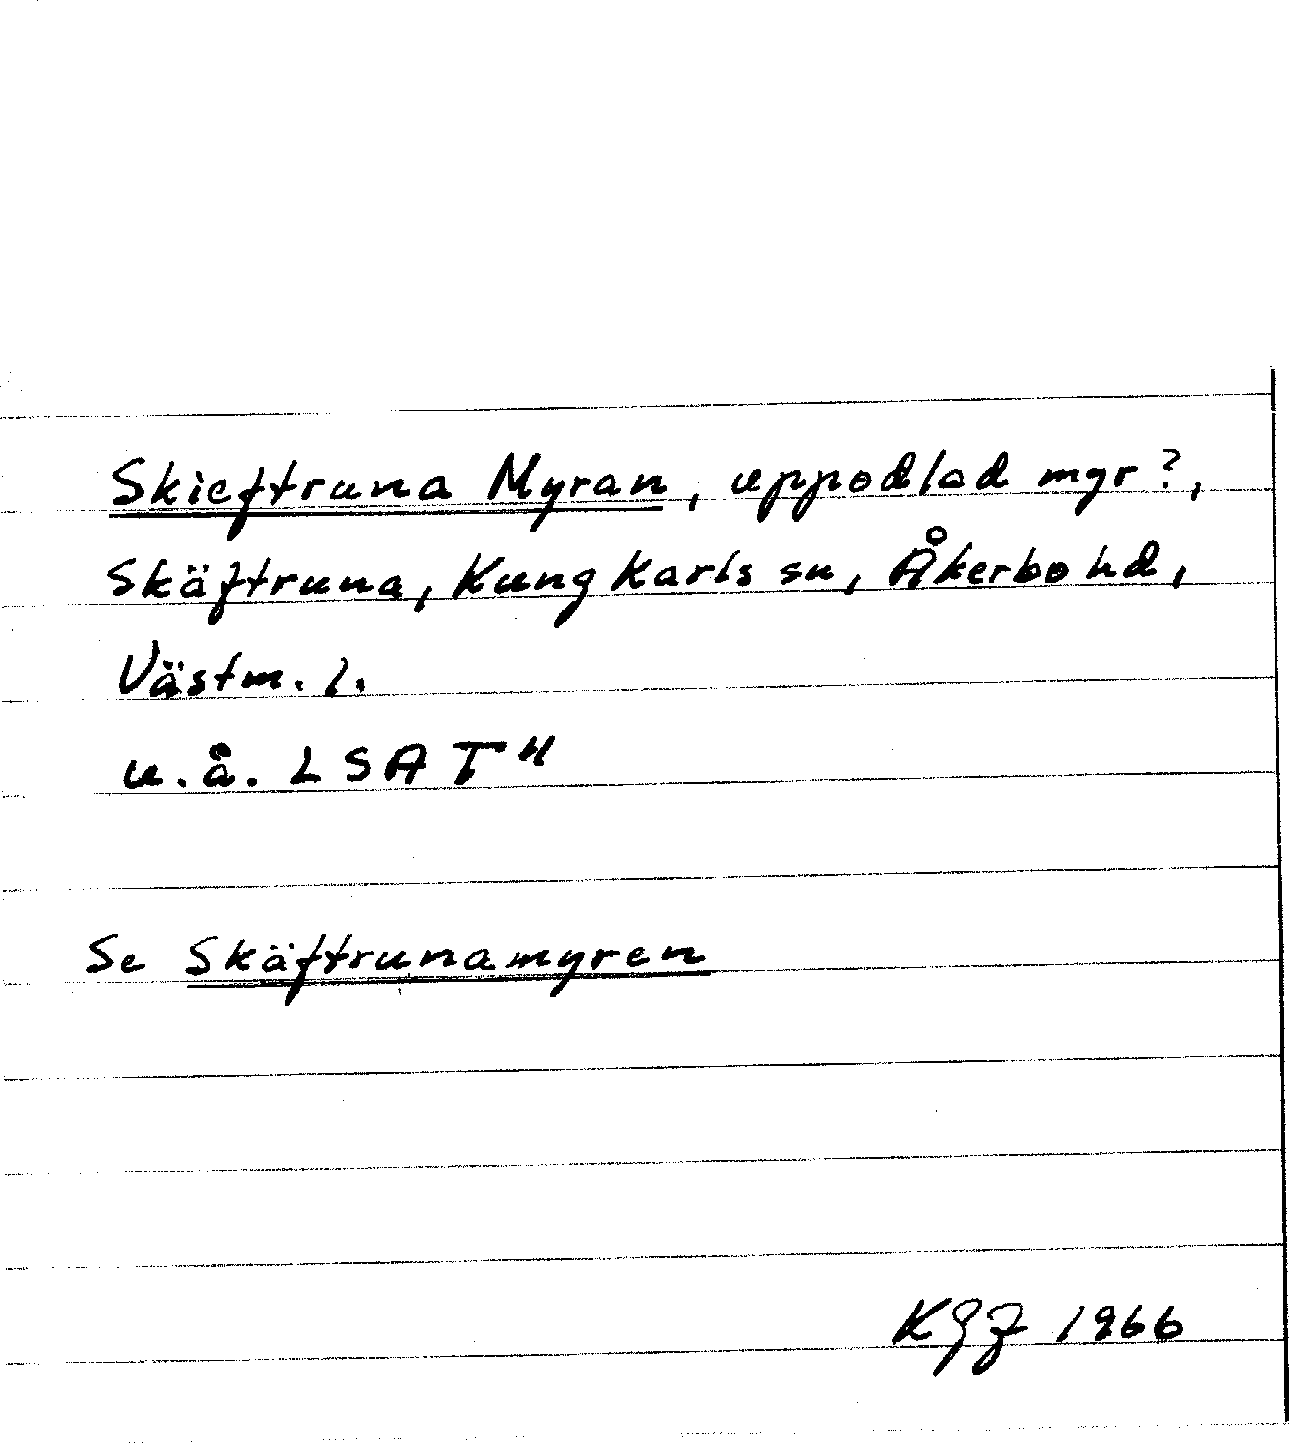 Skieftruna Myran, uppodlad myr?,
Skäftruna, Kung Karls sn, Åkerbo hd,
Västm. l.
u.å. LSA T"
Se Skäftrunamyren
1966